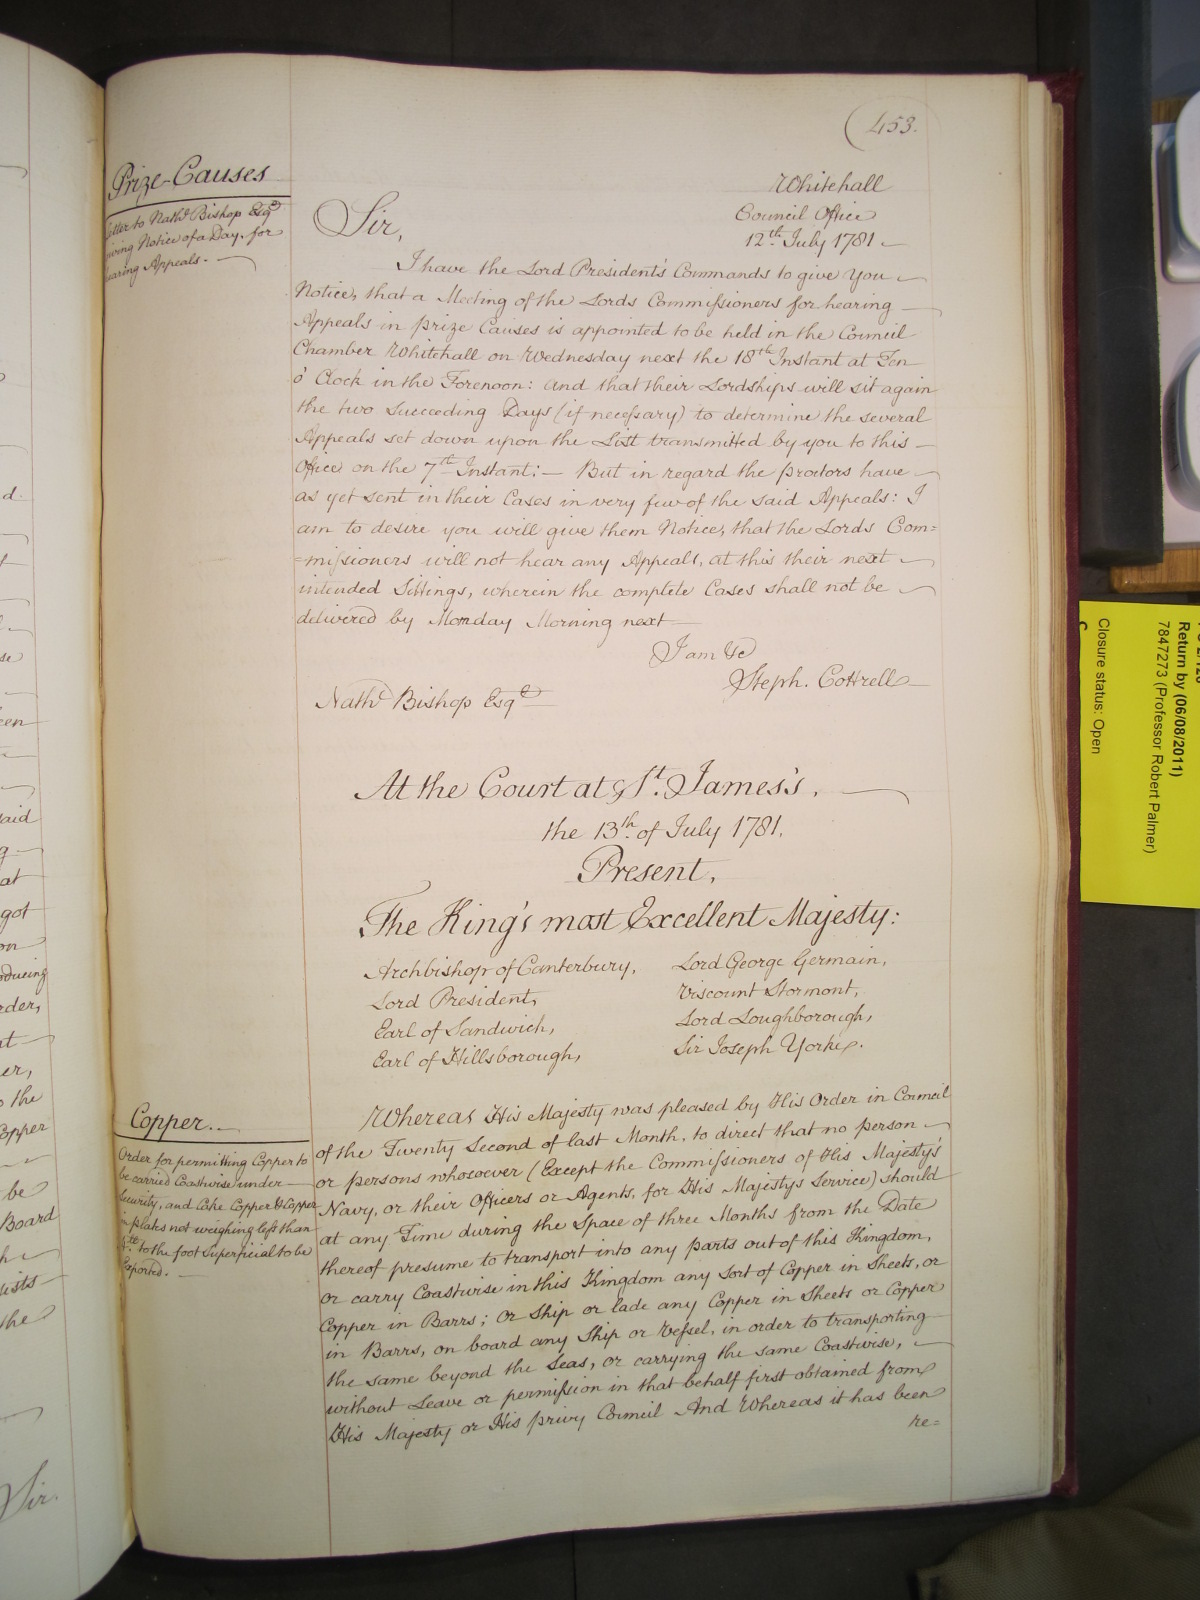 (453.
Prize-Causes
Letter to Nathl Bishop Esqe
giving Notice of a Day, for
hearing Appeals.
Whitehall
Council Office
12th July 1781
Sir,
I have the Lord President's Commands to give You
Notice, that a Meeting of the Lords Commissioners for hearing
Appeals in prize Causes is appointed to be held in the Council
Chamber Whitehall on Wednesday next the 18th Instant at Ten
o' Clock in the Forenoon: and that their Lordships will sit again
the two Succeeding Days (if necessary) to determine the several
Appeals set down upon the List transmitted by you to this
Office on the 7th Instant: — But in regard the proctors have
as yet sent in their Cases in very few of the said Appeals: I
am to desire you will give them Notice, that the Lords Com=
=missioners will not hear any Appeals, at this their next
intended Sittings, wherein the complete Cases shall not be
delivered by Monday Morning next
I am &c
Steph. Cottrell
Nathl Bishop Esqe
At the Court at St. James's,
the 13th of July 1781,
Present,
The King's most Excellent Majesty:
Archbishop of Canterbury,
Lord President,
Earl of Sandwich,
Earl of Hillsborough,
Lord George Germain,
Viscount Stormont,
Lord Loughborough,
Sir Joseph Yorke.
Copper.
Order for permitting Copper to
be carried Coastwise under
Security, and Cake Copper & Copper
in plates not weighing less than
4lb to the foot Superficial to be
Exported.
Whereas His Majesty was pleased by His Order in Council
of the Twenty Second of last Month, to direct that no person
or persons whosoever (Except the Commissioners of His Majesty's
Navy, or their Officers or Agents, for His Majestys Service) should
at any Time during the Space of three Months from the Date
thereof presume to transport into any parts out of this Kingdom,
or carry Coastwise in this Kingdom any Sort of Copper in Sheets, or
Copper in Barrs; or Ship or lade any Copper in Sheets or Copper
in Barrs, on board any Ship or Vessel, in order to transporting
the same beyond the Seas, or carrying the same Coastwise,
without Leave or permission in that behalf first obtained from
His Majesty or His privy Council And Whereas it has been
re=
Return by (06/08/2011)
7847273 (Professor Robert Palmer)
Closure status: Open
d.
een
said
at
got
on
oducing
rder,
er,
the
Copper
be
Board
the
Sir.